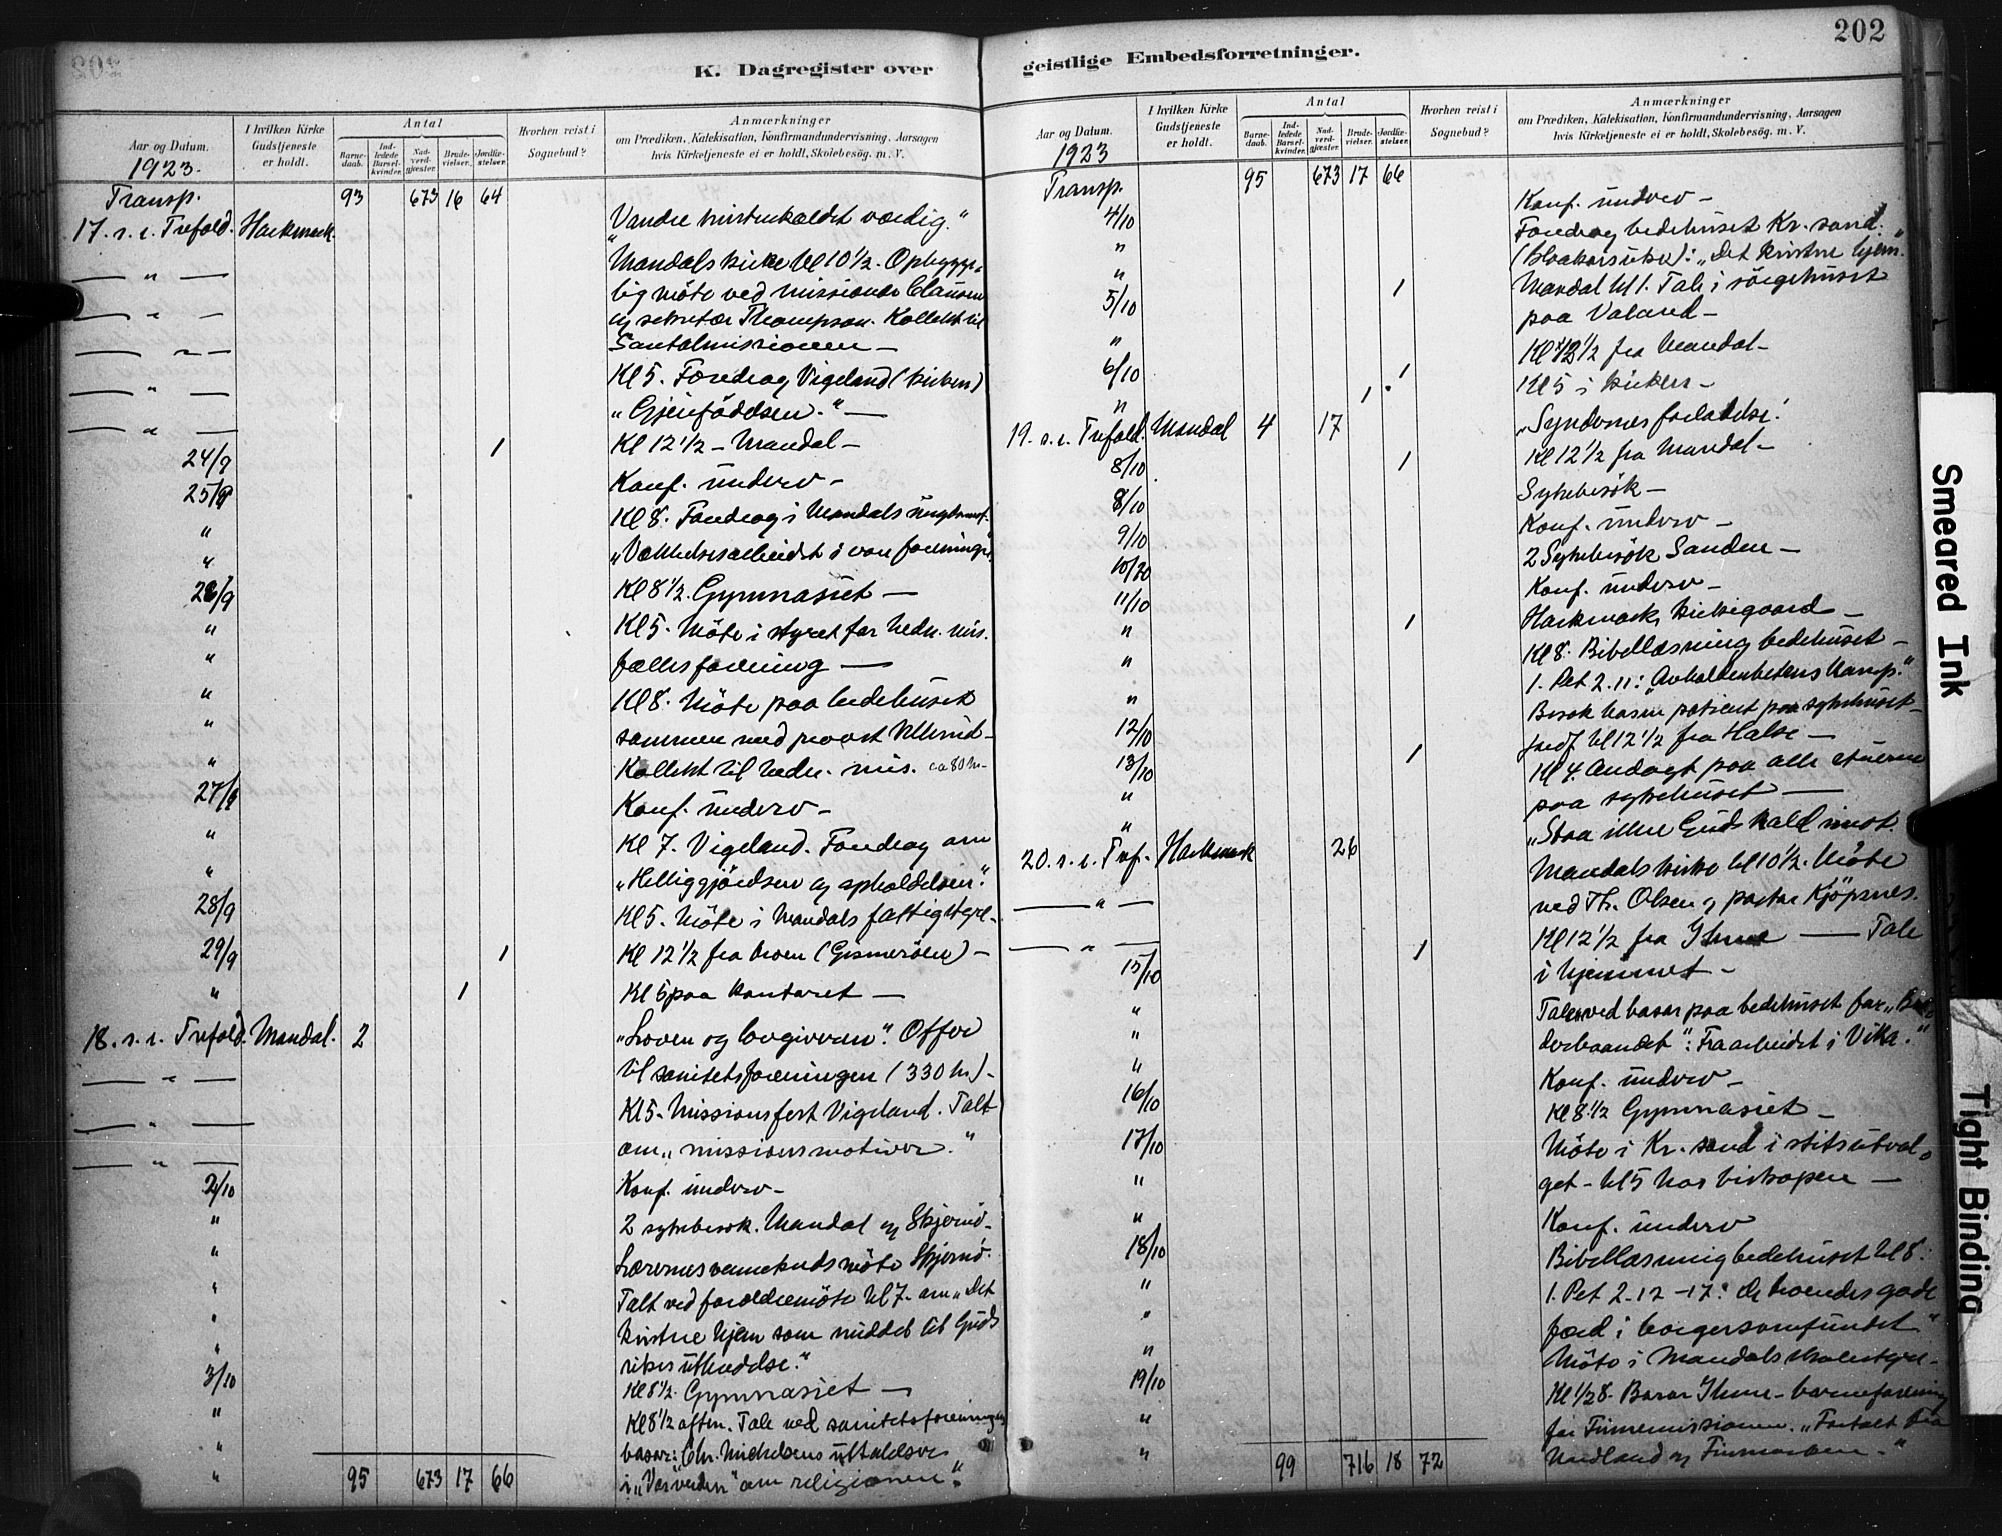 202
K. Dagregister over
Aar og Datum.
1923.
I hvilken Kirke Gudstjeneste er holdt.
Antal
Barne-daab.
Ind-ledede Barsel-kvinder.
Nad-verd-gjæster.
Brude-vielser.
Jordfæ-stelser.
Hvorhen reist i Sognebud?
Anmærkninger
om Prædiken, Katekisation, Konfirmandundervisning, Aarsagen
hvis Kirketjeneste ei er holdt, Skolebesøg. m. V.
Transp. 93 673 16 64
17. s. e. Trefold. Harkmark. "Vandre kaldet værdig."
— " — Mandals kirke kl 10½. Opbygge-
— " — lig møte ved missionær Clausen
— " — og sekretær Thompson. Kollekt til
— " — Santalmissionen —
— " — Kl 5. Foredrag Vigeland (kirken)
— " — "Gjenfödelsen." —
24/9 1 Kl 12½ – Mandal –
25/9 Konf. underv –
" Kl 8. Foredrag i Mandals
" "Vækkelsesarbeidet i vore foreninger"
26/9 Kl 8½. Gymnasiet —
" Kl 5. Möte i styret for hedn. mis.
" fællesforening —
" Kl 8. Möte paa bedehuset
" sammen med provst
" Kollekt til hedn. mis. ca 80 kr –
27/9 Konf. underv –
" Kl 7. Vigeland. Foredrag om
" "Helliggjörelsen og opholdelsen".
28/9 Kl 5. Möte i Mandals fattigstyre –
29/9 1 Kl 12½ fra (Gismeröen) –
" 1 Kl 6 paa kontoret —
18. s. e. Trefold. Mandal. 2 "Loven og lovgiveren". Offer
— " — til sanitetsforeningen (330 kr) –
— " — Kl 5. Missionsfest Vigeland. Talt
— " — om "missionsmotiver."
2/10 Konf. underv –
" 2 sykebesök. Mandal og Skjernö –
" möte Skjernö.
" Talt ved forældremöte kl 7. om "Det
" kristne hjem som middel til Guds
" rikes utbredelse."
3/10 Kl 8½. Gymnasiet —
" Kl 8½ aften. Tale ved sanitetsforeningens
" basar: Chr. Michelsens uttalelser
" i "Vor verden" om religionen".
95 673 17 66
geistlige Embedsforretninger.
Aar og Datum.
1923
I hvilken Kirke Gudstjeneste er holdt.
Antal
Barne-daab.
Ind-ledede Barsel-kvinder.
Nad-verd-gjæster.
Brude-vielser.
Jordfæ-stelser.
Hvorhen reist i Sognebud?
Anmærkninger
om Prædiken, Katekisation, Konfirmandundervisning, Aarsagen
hvis Kirketjeneste ei er holdt, Skolebesøg. m. V.
Transp. 95 673 17 66
4/10 Konf. underv –
" Foredrag bedehuset Kr. sand.
" "Det kristne hjem."
5/10 1 Mandal kl 1. Tale i sörgehuset
" paa Valand –
6/10 1 Kl 12½ fra Mandal –
" 1 Kl 5 i kirken –
19. s. e. Trefold. Mandal 4 17 "Syndernes forladelse".
8/10 1 Kl 12½ fra Mandal –
8/10 Sykebesök –
9/10 Konf. underv –
10/10 2 Sykebesök Sanden –
11/10 Konf. underv –
" 1 Harkmark kirkegaard –
" Kl 8. Bibellæsning bedehuset –
" 1. Pet 2.11: "Avholdenhetens kamp."
12/10 Besök hos en patient paa sykehuset –
13/10 1 Jordf kl 12½ fra Halse –
" Kl 4. Andagt paa alle stuerne
" paa sykehuset —
20. s. e. Tref. Harkmark 26 "Staa ikke Guds kald imot.
— " — Mandals kirke kl 10½. Möte
— " — ved Th. Olsen og pastor Kjöpsnes.
15/10 1 Kl 12½ fra Ihme — Tale
" i hjemmet –
" Tale ved basar paa bedehuset for "
" : Fra arbeidet i Vika."
16/10 Konf. underv –
17/10 Kl 8½ Gymnasiet –
" Möte i Kr. sand i stiftsutval-
" get – kl 5 hos biskopen —
18/10 Konf. underv
" Bibellæsning bedehuset kl 8:
" 1. Pet 2-12-17: De troendes gode
" færd i borgersamfundet"
19/10 Möte i Mandals skolestyre –
" Kl ½8. Basar Ihme – barneforening
" for Finnemissionen. "Fortalt fra
99 716 18 72 Nordland og Finmarken –"
Smeared Ink
Tight Binding